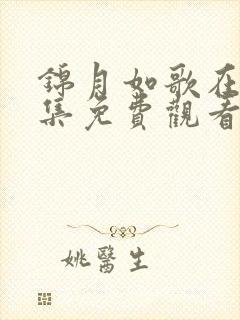 錦月如歌在
集免費觀看
姚醫生